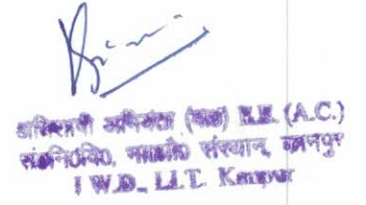 अधिशासी अभियंता (वाता) E.E. (A.C.)
सं0नि0वि0, भा0प्रौ0 संस्थान, कानपुर
I W.D., I.I.T. Kanpur